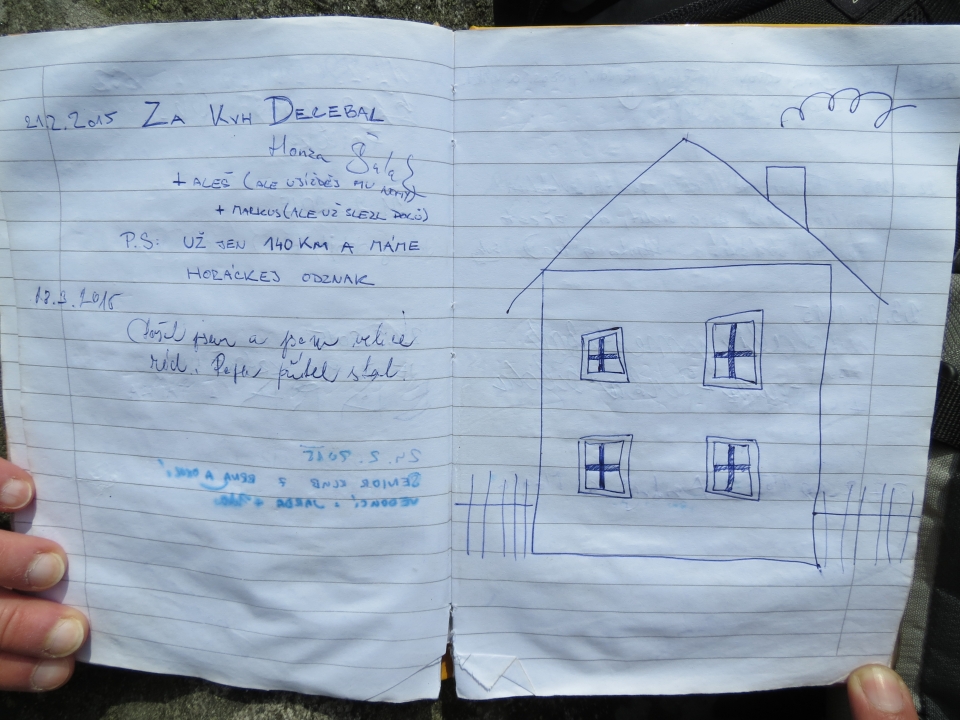 21.2.2015 ZA KVH DECEBAL
Honza
+ ALEŠ (ALE UJÍŽDĚJ MU
+ MARKUS (ALE UŽ SLEZL DOLŮ)
P.S: UŽ JEN 140 KM A MÁME
HORÁCKEJ ODZNAK
18.3.2015
Došel jsem a jsem velice
rád. Pepa přítel
24.5.2015
SENIOR
VEDOUCÍ